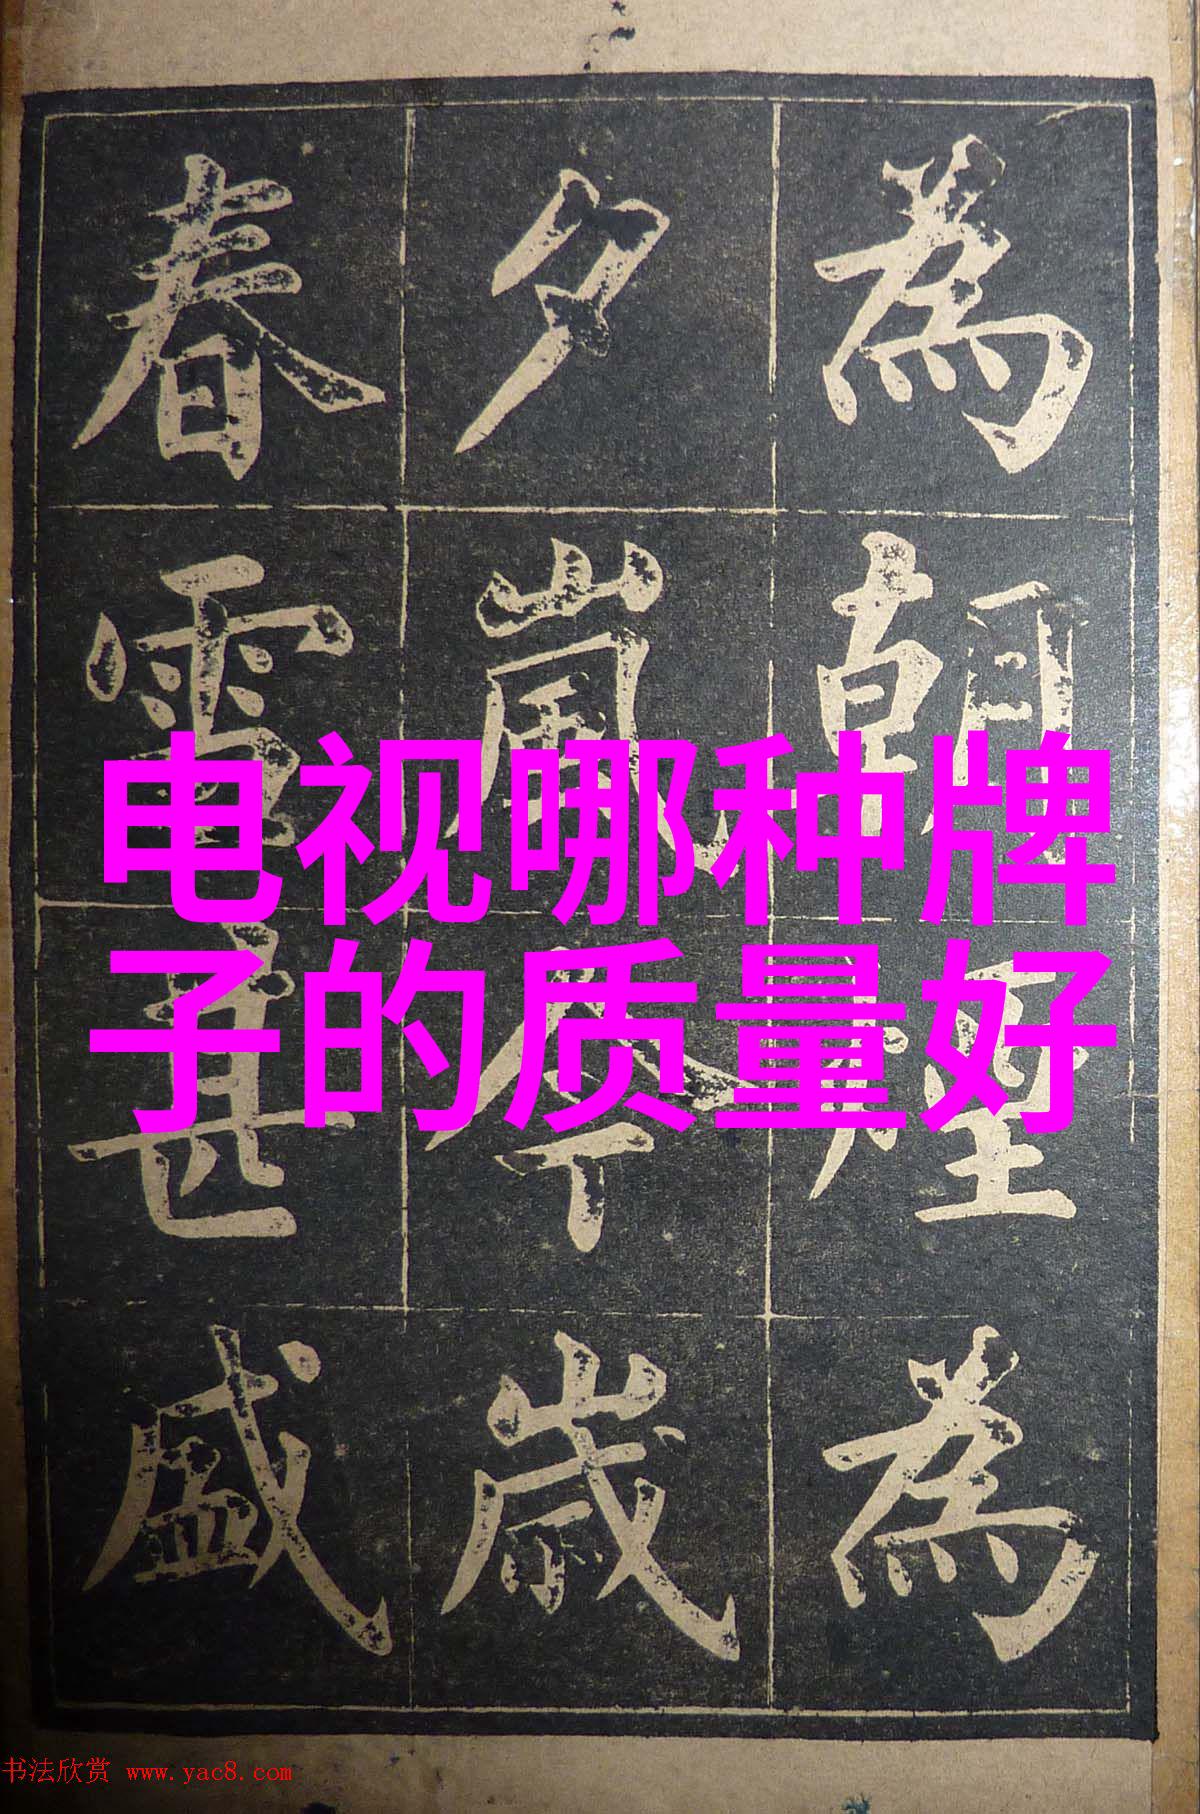 電视哪种牌
子的质量好
為朝煙為
夕嵐今歲
春雪甚盛
书法欣赏 www.yac8.com